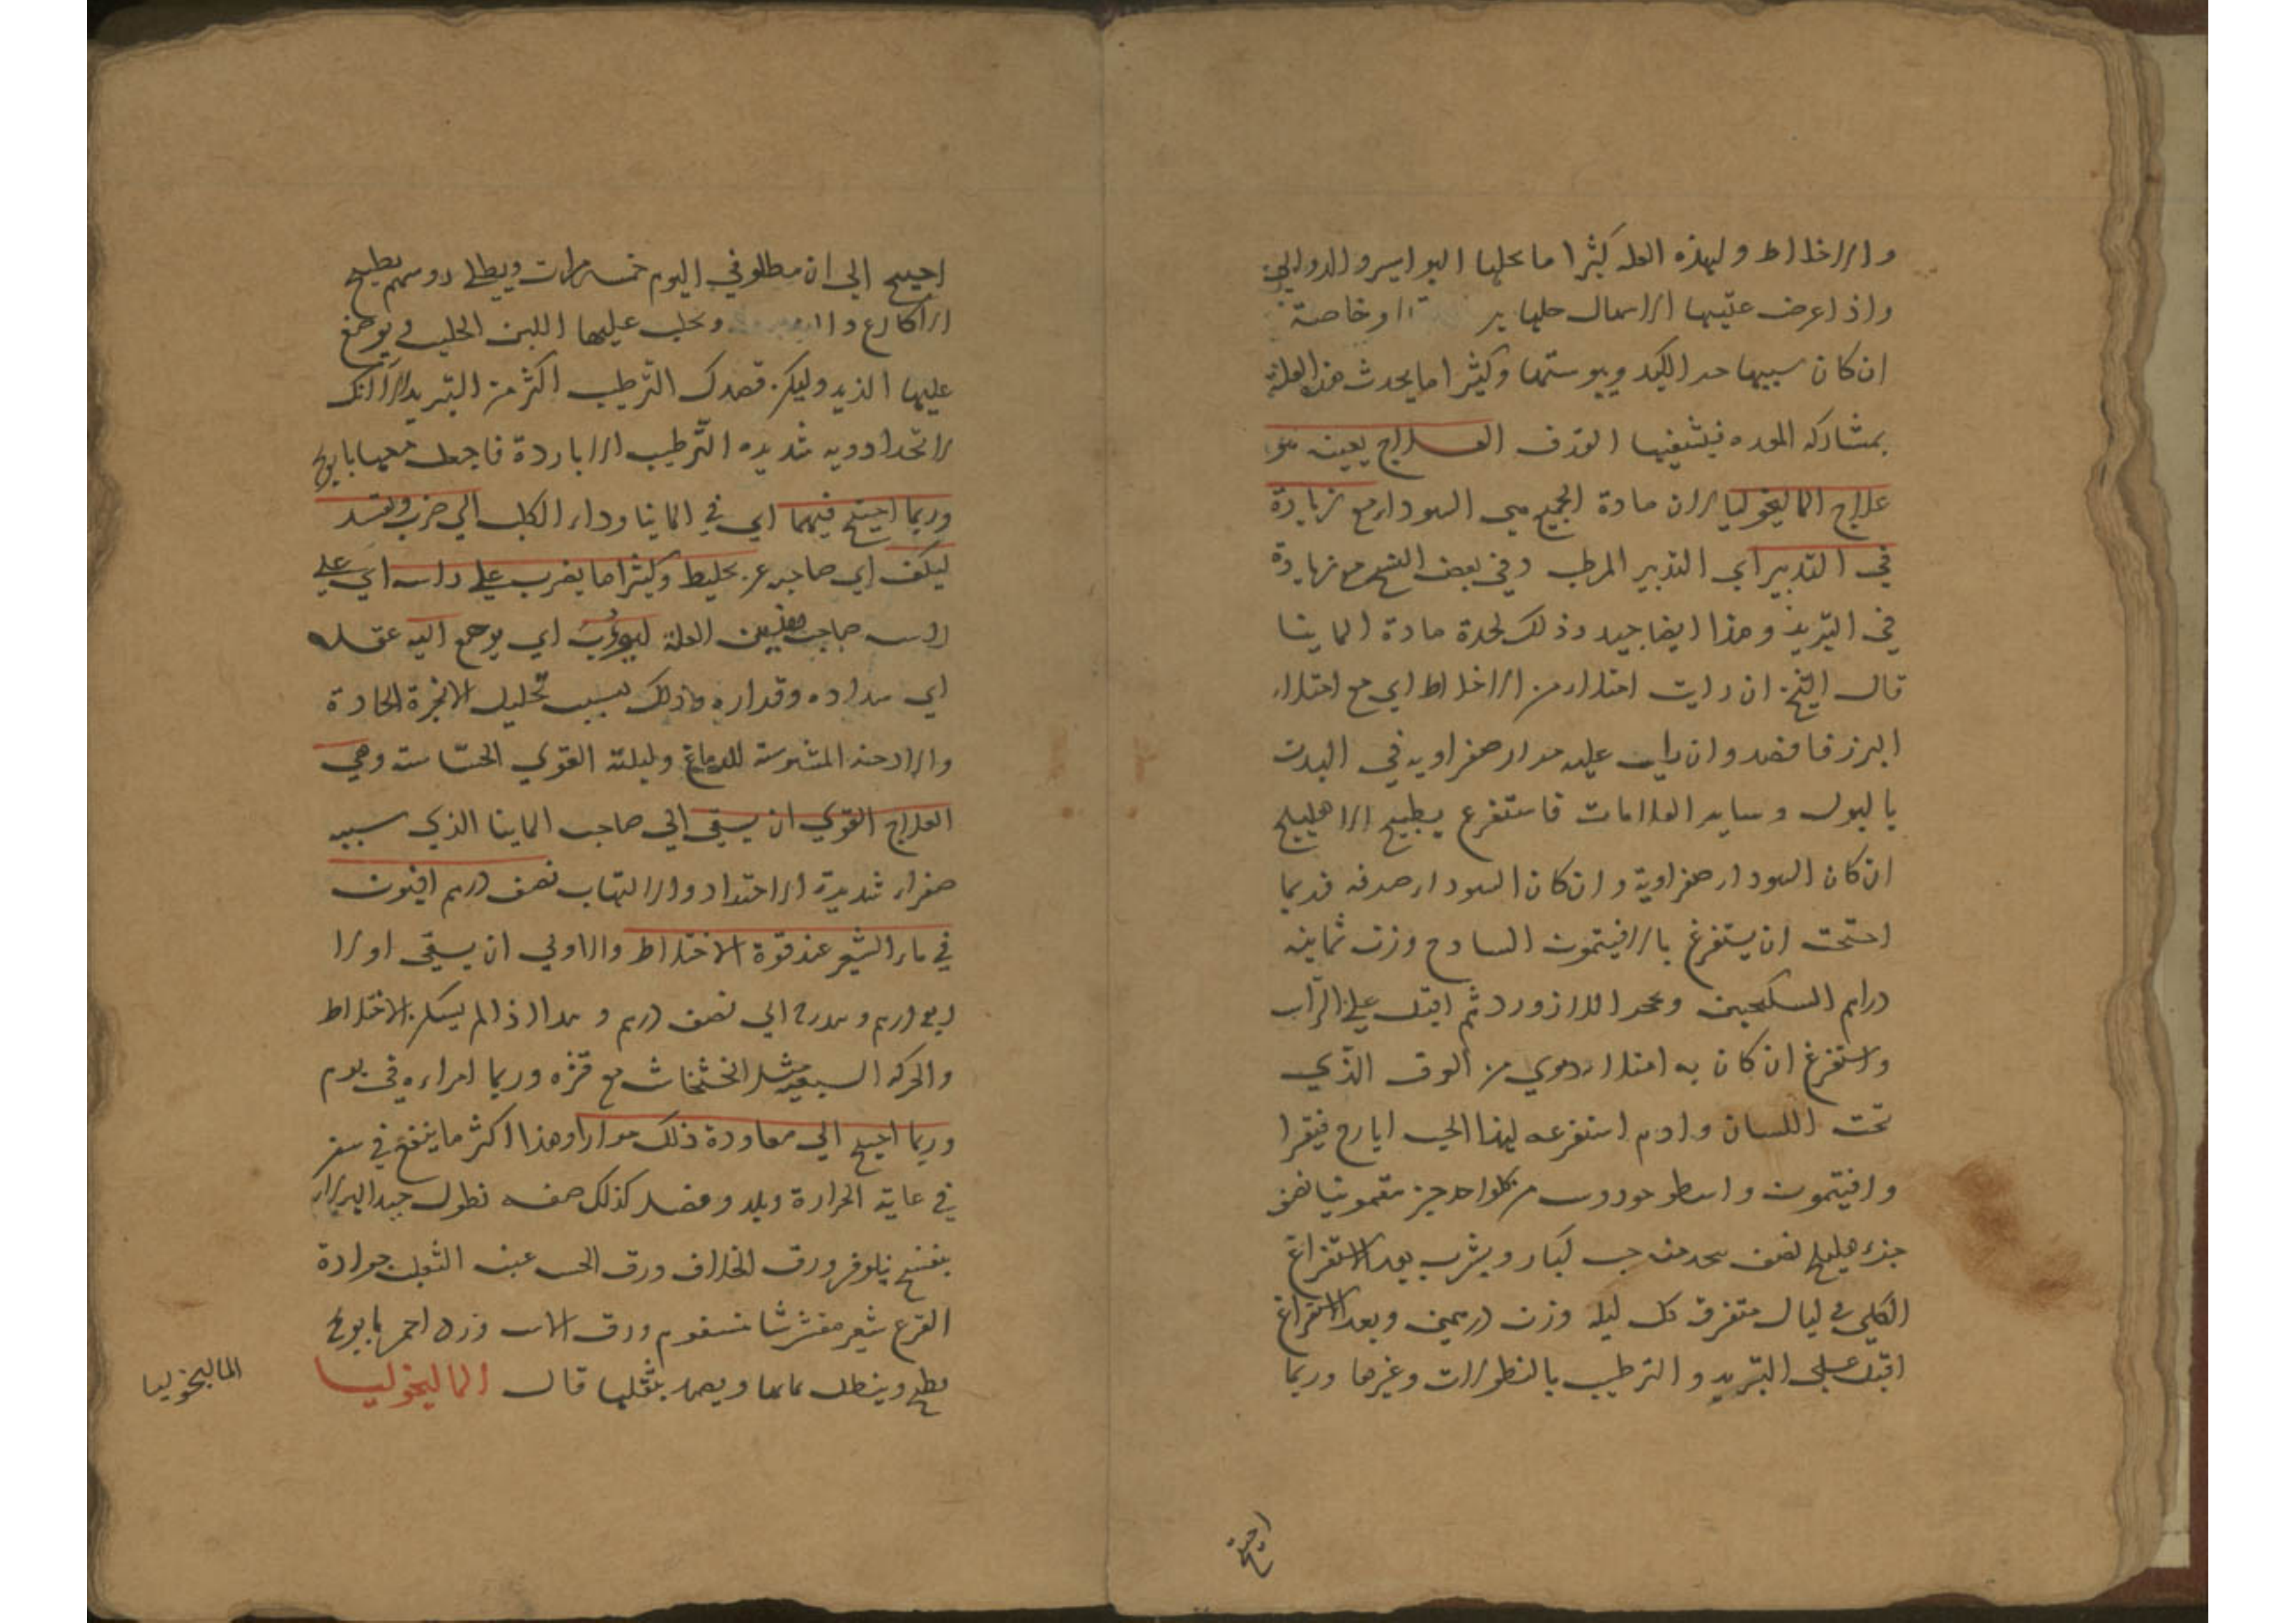 والاخلاط ولهذه العله كثيرا ما يحلها البواسير والدوالي
واذا عرض عقيبها الاسهال حلها او خاصة
ان كان سببها حر الكبد ويبوستها وكثيرا ما يحدث هذه العلة
بمشاركه المعده فيشفيها القذف العلاج بعينه هو
علاج الماليخوليا لان مادة الجميع هي السوداء مع زيادة
في التدبير اي التدبير المرطب وفي بعض النسخ مع زيادة
في التبريد وهذا ايضا جيد وذلك لحدة مادة المانيا
قال الشيخ ان رايت امتلاء من الاخلاط اي مع امتلاء
فافصد وان رايت غلبه مواد صفراويه في البدن
بالبول وساير العلامات فاستفرغ بطبيخ الاهليلج
ان كان السوداء صفراوية وان كان السوداء صرفه فربما
احتجت ان يستفرغ بالافيتمون السادج وزن ثمانيه
دراهم السكنجبين وحجر اللازورد ثم اقبل علي الراس
واستفرغ ان كان به امتلاء دموي من العرق الذي
تحت اللسان وادم استفرغه لهذا الحب ايارج فيقرا
وافيتمون واسطوخودوس من كلواحد جزء سقمونيا نصف
جزء هليلج نصف يتخذ منه حب كبار ويشرب بعد الاستفراغ
الكلي في ليال متفرق كل ليله وزن درهمين وبعد الاستفراغ
اقبل علي التبريد والترطيب بالنطولات وغيرها وربما
احتيج
احتيج الي ان ينطلو في اليوم خمس مرات ويطلى روسهم بطبيخ
الاكارع و ويحلب عليها اللبن الحليب ويوضع
عليها الزبد وليكن قصدك الترطيب اكثر من التبريد الا انك
لا تجد ادويه شديده الترطيب الا باردة فاجعل معها بابونج
وربما احتيج فيهما اي في المانيا وداء الكلب الي ضرب وتقييد
ليكف اي صاحبه عن تخليط وكثيرا ما يضرب علي راسه اي علي
راس صاحب العلة ليؤوب اي يرجع اليه عقله
اي سداده وقراره وذلك بسبب تحليل الابخرة الحادة
والادخنه المشوشة للدماغ والقوي الحساسة وهي
العلاج القوي ان يسقي الي صاحب المانيا الذي سببه
صفراء شديدة الاحتداد والالتهاب نصف درهم افيون
في ماء الشعير عند قوة الاختلاط والاولي ان يسقي اولا
ربع درهم ويتدرج الي نصف درهم وهذا اذا لم يسكن الاختلاط
والحركه السبعيه مثل الخشخاش مع قشره وربما ابراءه في يوم
وربما احتيج الي معاودة ذلك مرارا وهذا اكثر ما ينفع في سفر
في غاية الحرارة وبلد وفصل كذلك صفه نطول جيد
بنفسج نيلوفر ورق الخلاف ورق الخس عنب الثعلب جرادة
القرع شعير مقشر ورق الاس ورد احمر بابونج
يطبخ وينطل بمائها ويضمد بثقلها قال الماليخوليا
الماليخوليا